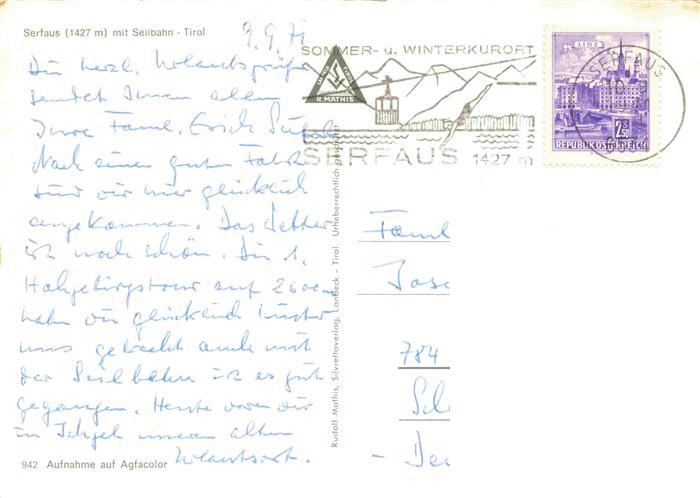 Serfaus (1427 m) mit Seilbahn - Tirol
9.9.71
Die herzl. Urlaubsgrüße
sendet Ihnen allen
Ihre Faml. Erich
Nach einer guten Fahrt
sind wir hier glücklich
angekommen. Das Wetter
ist noch schön. Die 1.
Hochgebirgstour auf 2600m
haben wir glücklich hinter
uns gebracht auch mit
der Seilbahn ist es gut
gegangen. Heute waren wir
in Ischgl unserem alten
Urlaubsort.
942 Aufnahme auf Agfacolor
Rudolf Mathis, Silvrettaverlag, Landeck - Tirol. Urheberrechtlich geschützt
R MATHIS
SOMMER- u. WINTERKURORT
SERFAUS 1427 m
SERFAUS
LINZ
2.50
REPUBLIK ÖSTERREICH
Faml
Jose
784
- Deu